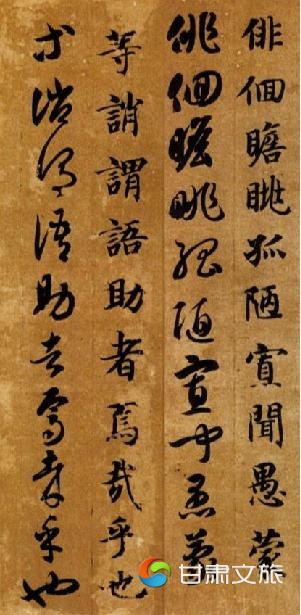 俳佪瞻眺孤陋寡聞愚蒙
俳佪瞻眺孤陋寡聞愚蒙
等誚謂語助者焉哉乎也
等誚謂語助者焉哉乎也
甘肃文旅